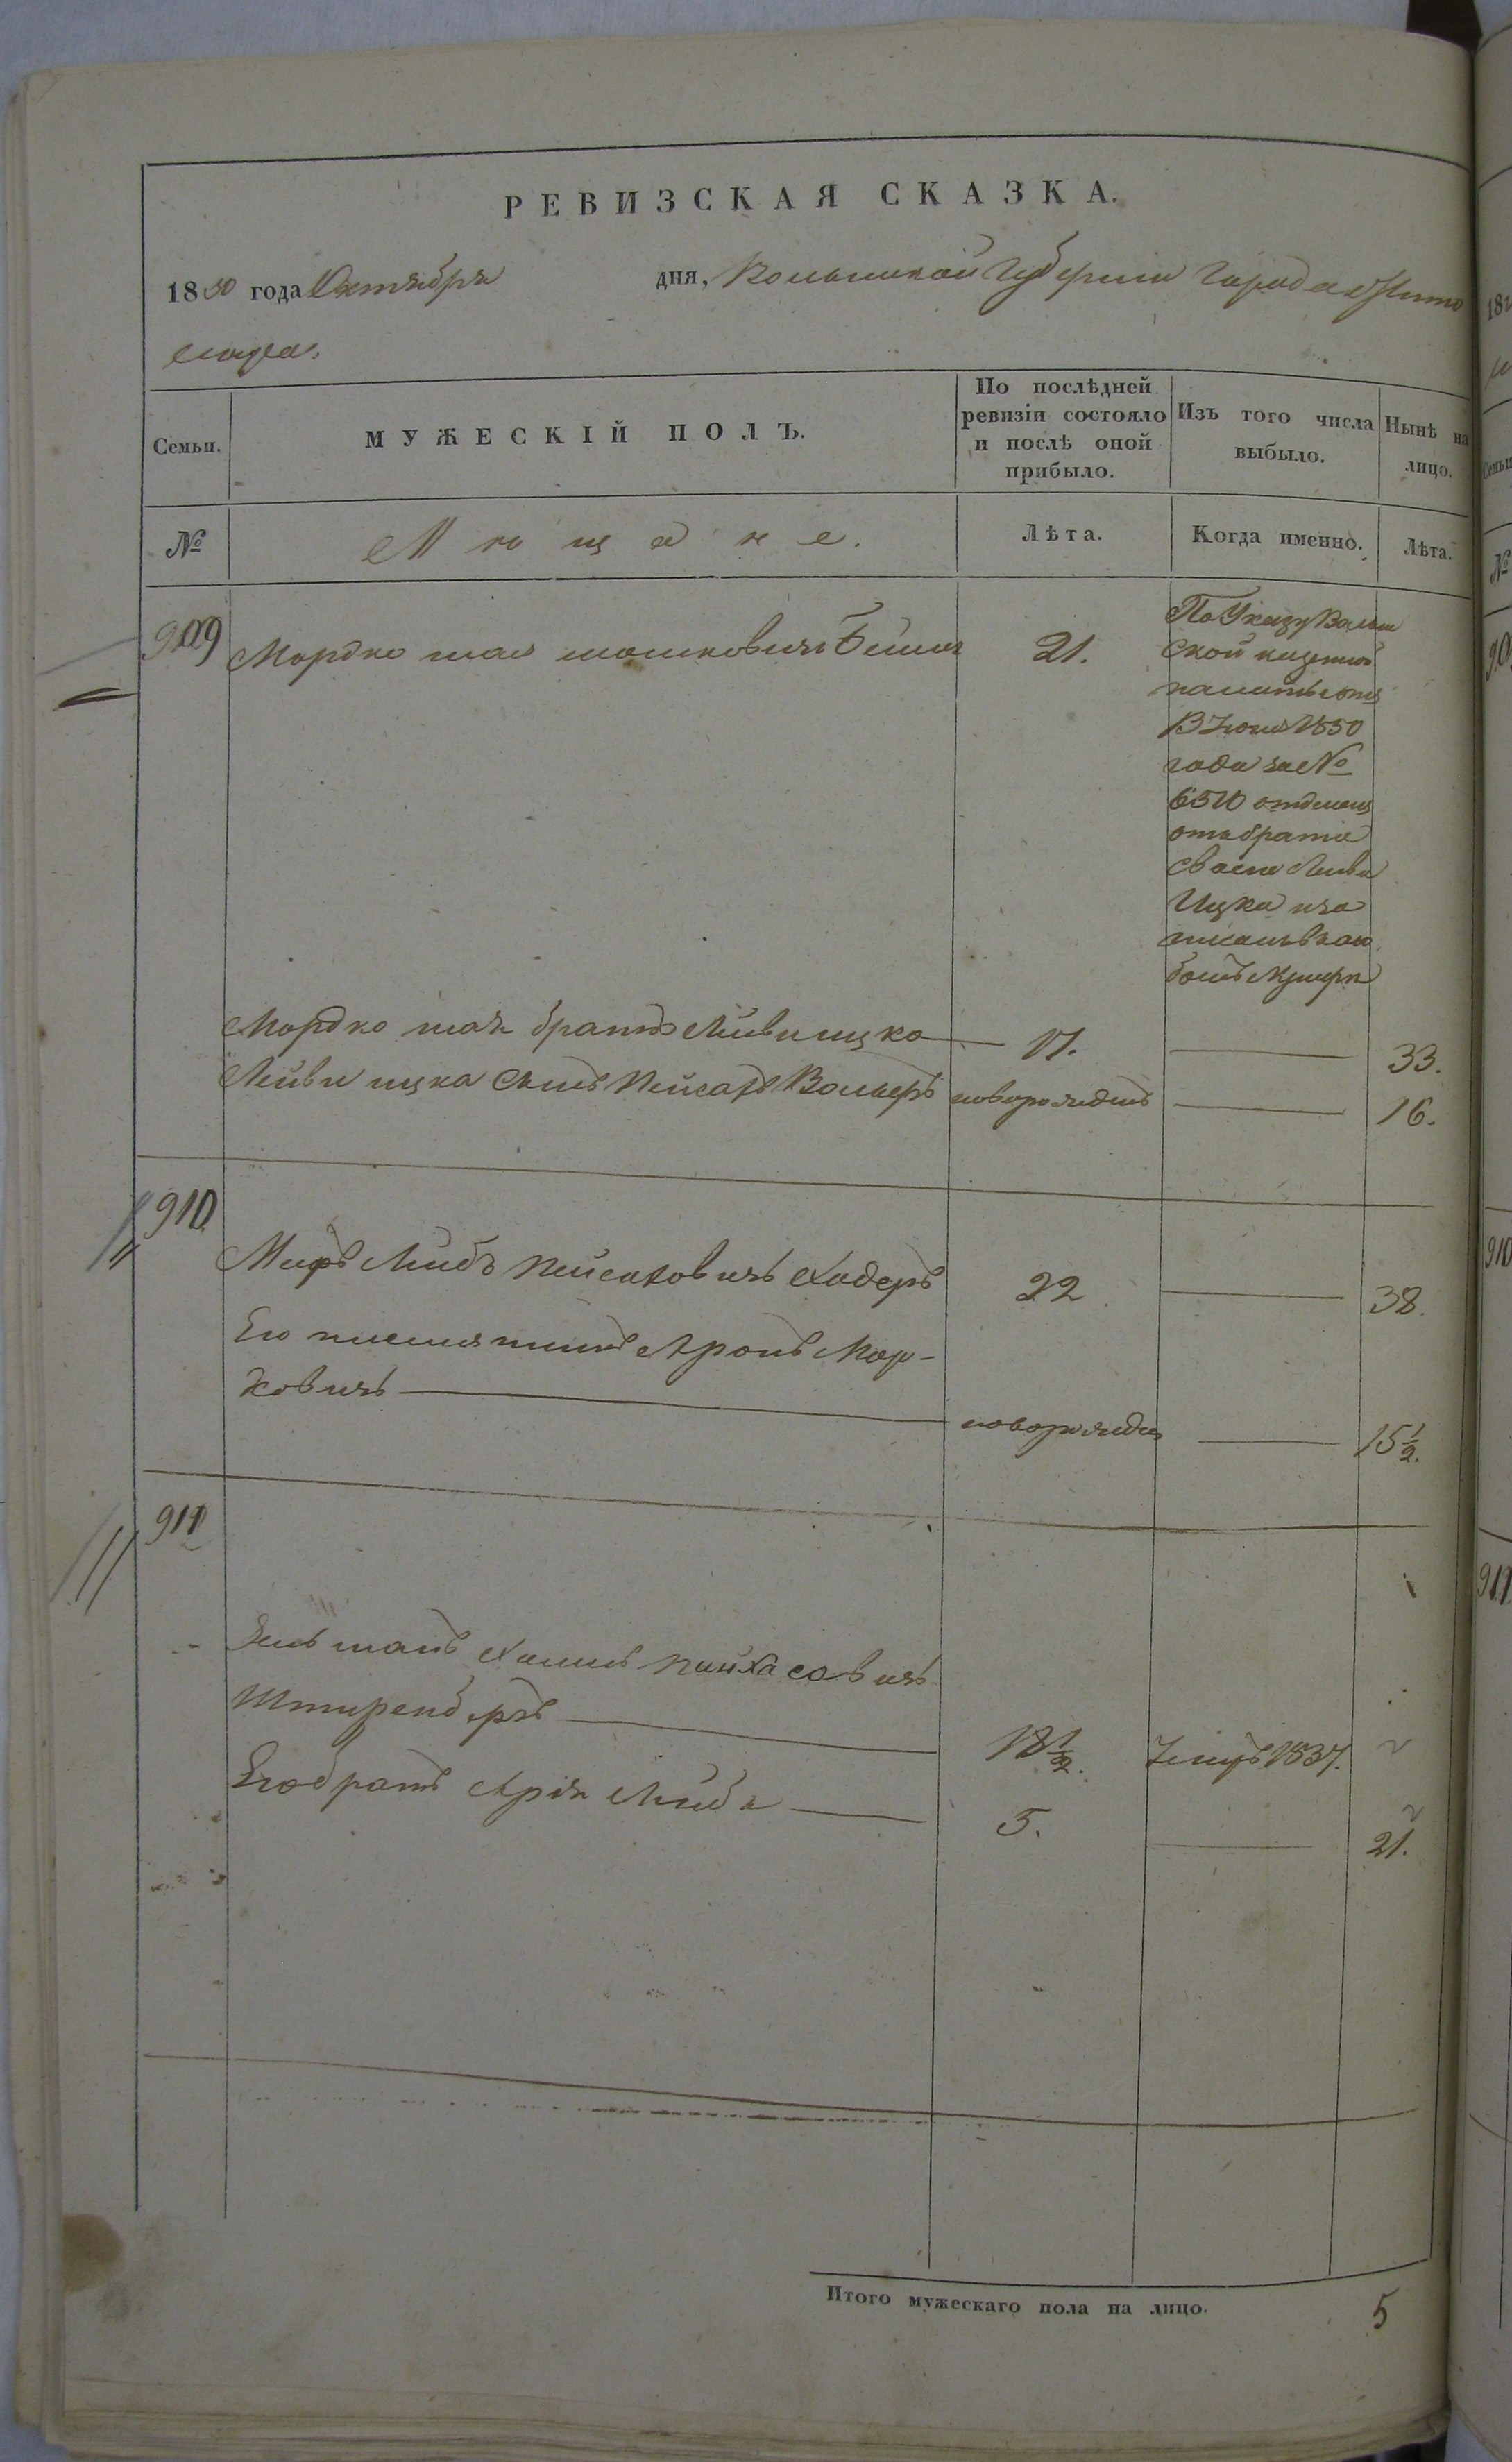 РЕВИЗСКАЯ СКАЗКА.
1850 года Октября дня, Волынской Губернiи Города Жито
мира.
Семьи.
МУЖЕСКIЙ ПОЛЪ.
По послѣдней
ревизiи состояло
и послѣ оной
прибыло.
Изъ того числа
выбыло.
Нынѣ на
лицо.
№
Мѣщане.
Лѣта.
Когда именно.
Лѣта.
909
Мордко шая мошковичъ
21.
По Указу Волын
ской казенной
палаты отъ
13 Iюня 1850
года за №
отъ брата
своего Лейви
Ицка
Мордко шая братъ Лейви ицко
17.
33.
Лейви ицка сынъ Пейсахъ Волько
новорожденъ
16.
910
Лейбъ Пейсаховичъ Ходеръ
22.
38.
Его племянникъ Аронъ Мор-
ковичъ
новорожден
15½.
911
Зельманъ Хаимъ Пинхасовичъ
Штиренберъ
18½.
1837.
Его братъ Арiя Лейба
5.
21.
Итого мужескаго пола на лицо.
5